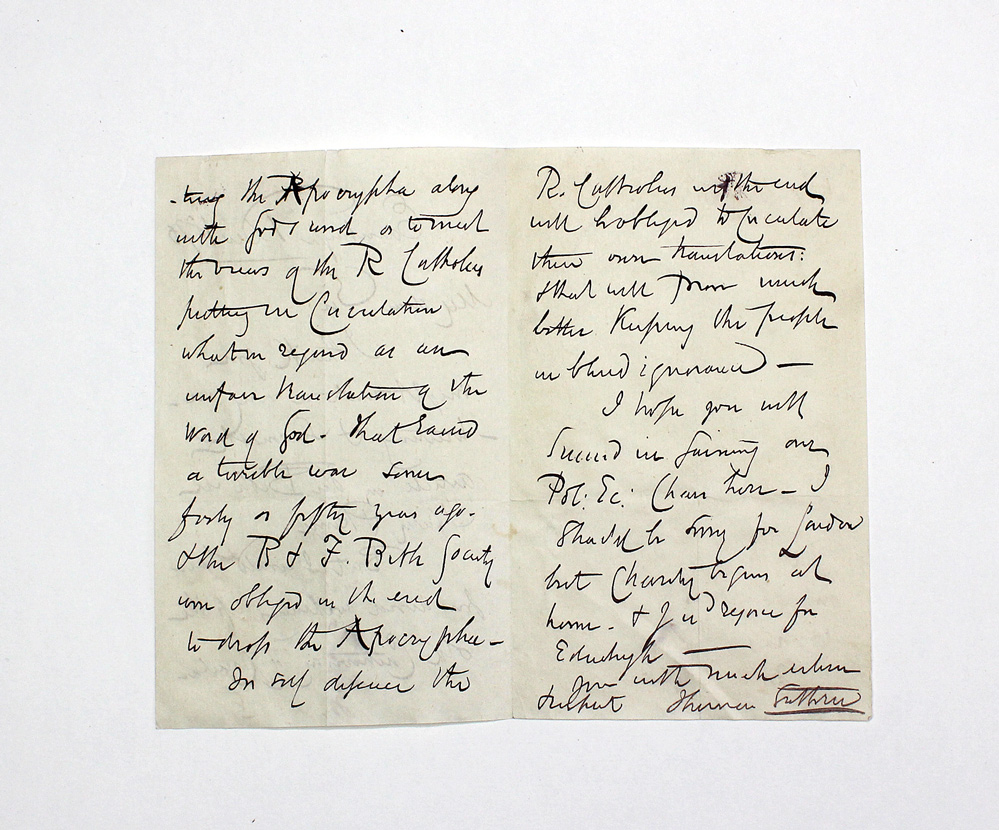 -ting the Apocrypha along
with God's word or to meet
the views of the R Catholics
putting in Circulation
what we regard as an
unfair translation of the
Word of God. That caused
a terrible war some
forty or fifty years ago.
& the B & F. Bible Society
were obliged in the end
to drop the Apocrypha —
In self defence the
R. Catholics in the end
will be obliged to Circulate
their own translations:
& that will prove much
better Keeping the people
in blind ignorance —
I hope you will
Succeed in gaining our
Pol: Ec: Chair here — I
Should be sorry for London
but Charity begins at
home. & I wd rejoice for
Edinburgh —
Yours with much esteem
& respect Thomas Guthrie